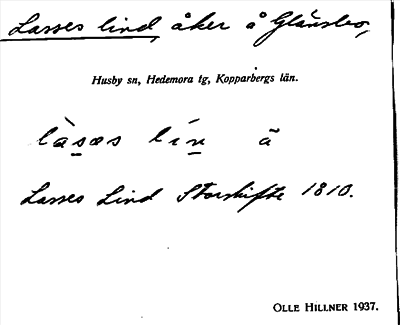 Lasses lind, åker å Glänsbo,
Husby sn, Hedemora tg, Kopparbergs län.
làsæs lín ä
Lasses Lind Storskifte 1810.
OLLE HILLNER 1937.